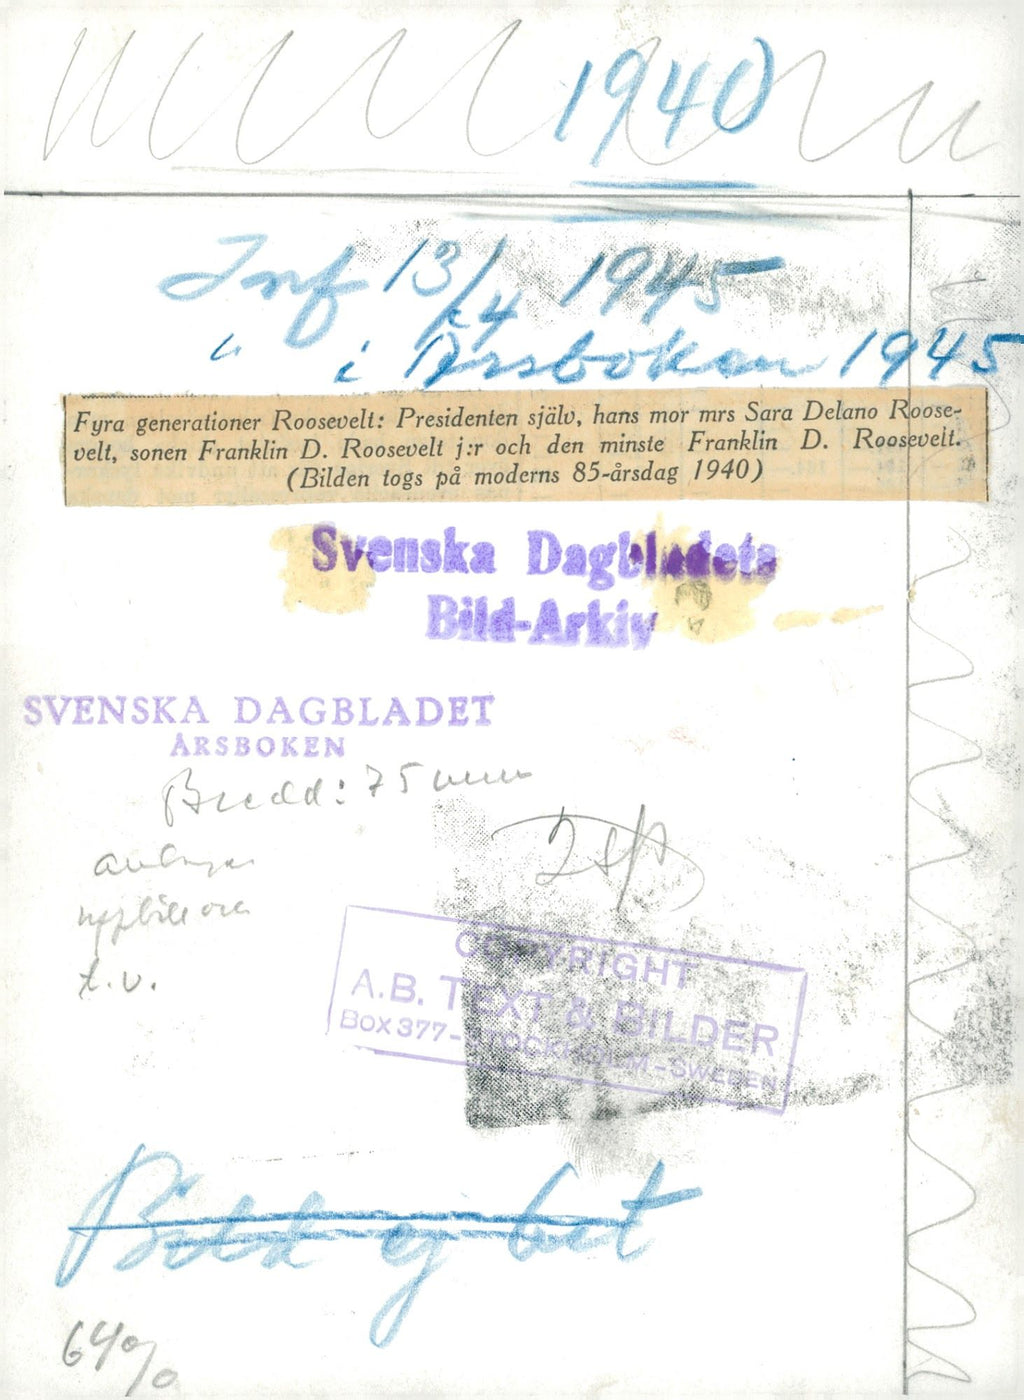 1940
Inf 13/4 1945
" i Årsboken 1945
Fyra generationer Roosevelt: Presidenten själv, hans mor mrs Sara Delano Roose-
velt, sonen Franklin D. Roosevelt j:r och den minste Franklin D. Roosevelt.
(Bilden togs på moderns 85-årsdag 1940)
Svenska Dagbladets
Bild-Arkiv
SVENSKA DAGBLADET
ÅRSBOKEN
Bredd: 75 mm
t.v.
COPYRIGHT
A.B. TEXT & BILDER
BOX 377 - STOCKHOLM - SWEDEN
Bild ej bet
64%